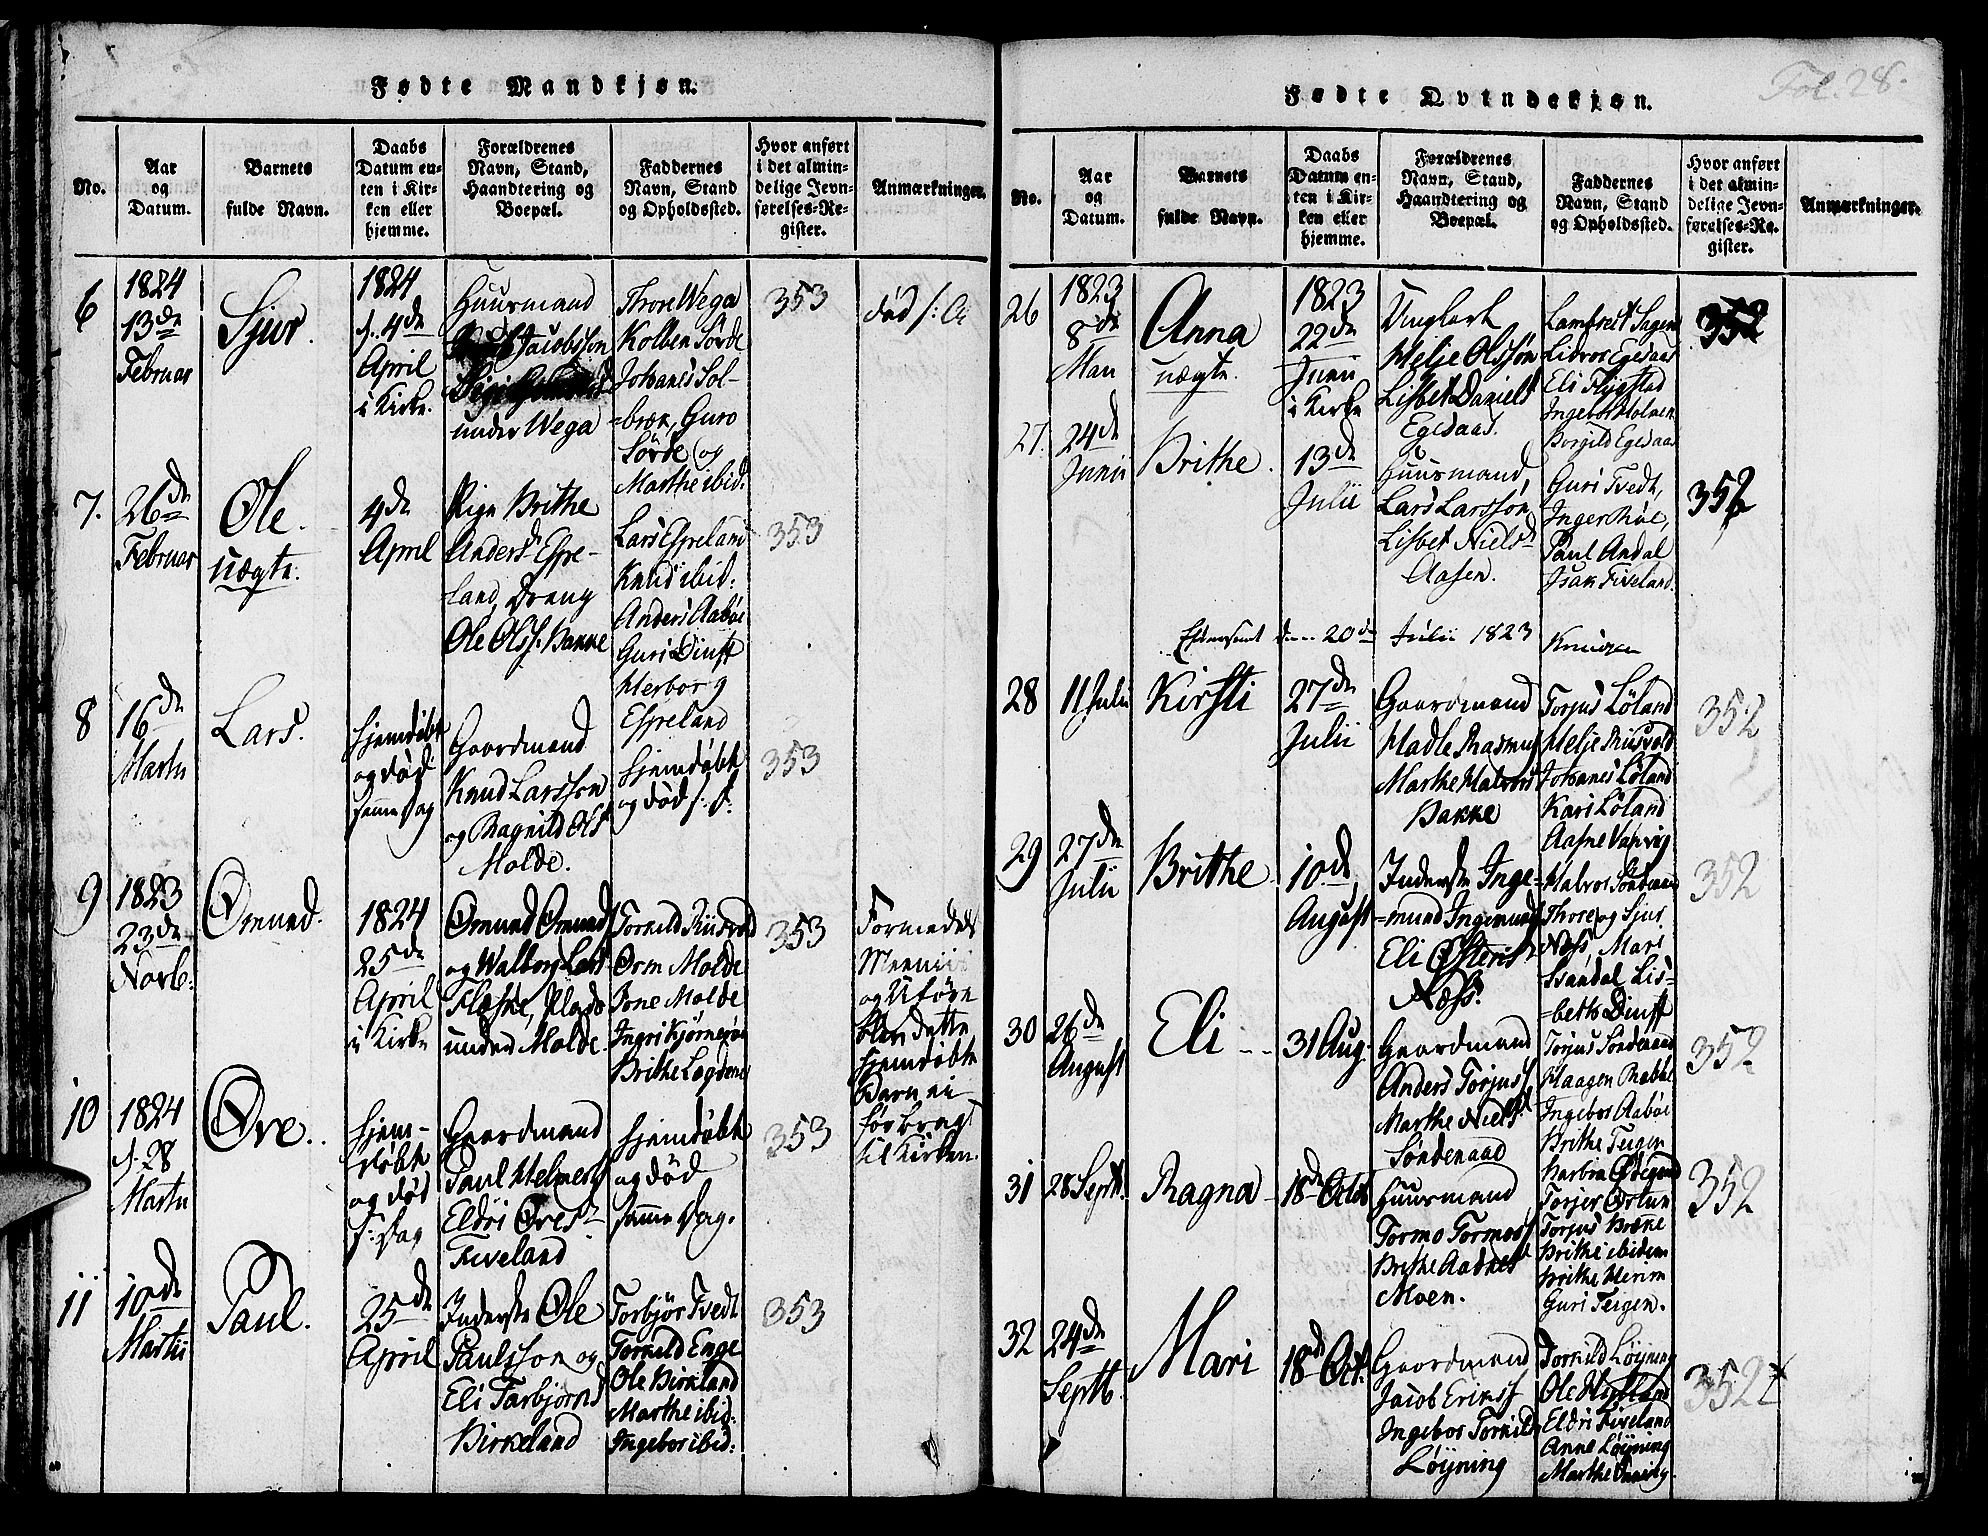 Fødte Mandkjøn.
No.
Aar
og
Datum.
Barnets
fulde Navn.
Daabs
Datum en-
ten i Kir-
ken eller
hjemme.
Forældrenes
Navn, Stand,
Haandtering og
Boepæl.
Faddernes
Navn, Stand
og Opholdssted.
Hvor anført
i det almin-
delige Jevn-
førelses-Re-
gister.
Anmærkninger.
6
1824
13de
Februar
Sjur.
1824
d. 4de
April
i Kirke.
Huusmand
Jacobsson
under Wega
Thore Wega
Kolben Sörde
Johanes Sol-
=bræk, Guro
Sörde og
Marthe ibid:
353
död
7.
26de
Februar
Ole.
uægte.
4de
April
Pige Brithe
Andersd Espe-
land, Dreng
Ole Olss. Bakke
Lars Espeland
Knud ibid:
Anders Aaböe
Guri Dinst
Herborg
Espeland
353
8
16de
Martii
Lars.
hjemdöbt
og död
samme dag
Gaardmand
Knud Larsson
og Ragnild Olsd
Molde.
hjemdöbt
og död s: d:
353
9
1823
23de
Novb:
Omund.
1824
25de
April
i Kirke
Omund Omunds
og Walborg Larsd
Flæske, Plads
under Molde.
Torkild Riisvold
Orm Molde
Jone Molde
Ingri Kjörneröe
Brithe Lagdene
353
Formedelst
og Uföre
blev dette
hjemdöbte
Barn ei
för bragt
til Kirken.
10
1824
d. 28
Martii
Ove.
hjem-
döbt
og död
s: Dag
Gaardmand
Paul Helmers
Eldri Ovesd
Fiveland
hjemdöbt
og död
samme Dag.
353
11
10de
Martii
Paul.
25de
April
Inderste Ole
Paulsson og
Eli Tarbjørnsd
Birkeland
Torbjör Tvedt
Torkild Enge
Ole Birkland
Marthe ibid:
Ingebor ibid:
353
Fødte Qvindekjøn.
Fol. 28.
No.
Aar
og
Datum.
Barnets
fulde Navn.
Daabs
Datum en-
ten i Kir-
ken eller
hjemme.
Forældrenes
Navn, Stand,
Haandtering og
Boepæl.
Faddernes
Navn, Stand
og Opholdssted.
Hvor anført
i det almin-
delige Jevn-
førelses-Re-
gister.
Anmærkninger.
26
1823
8de
Maii
Anna
uægte.
1823
22de
Junii
i Kirke
Ungkarl
Helje Olssön
Lisbet Danielsd
Egedaas.
Lambret Sagen
Lidvor Egedaas
Eli Flygstad
Ingebor Holmen
Borgild Egedaas
352
27.
24de
Junii
Brithe.
13de
Julii
Huusmand,
Lars Larssön,
Lisbet Nielsd
Aasen.
Guri Tvedt,
Inger Röe,
Paul Andal
Isak Fiveland.
352
den 20de Julii 1823
28
11 Julii
Kirsti
27de
Julii
Gaardmand
Hadle Rasmuss
Marthe Halvorsd
Bakke
Torjus Löland
Helje Riisvold
Johanes Löland
Kari Löland
Aasne Vanvig
352
29
27de
Julii
Brithe.
10de
August
Inderste Inge-
=mund Ingemunds
Eli Ostensd
Næss.
Halvor Sandenaa
Thore og Sjur
Næss, Mari
Svandal Lis-
=beth Dinst
352
30
26de
August
Eli
31 Aug.
Gaardmand
Anders Torjuss
Marthe Nielsd
Söndenaae
Torjus Sondenaae
Haagen Rabbe
Ingebor Aaböe
Brithe Teigen
352
31
28 Septb.
Ragna
18de Octob
Huusmand
Tormo Tormods
Brithe Aadnesd
Moen.
Torjer Ostun
Torjus Bræke
Brithe ibidem
Guri Teigen.
352
32
24de
Septb.
Mari
18de Oct.
Gaardmand
Jacob Erikss
Ingebor Torkildsd
Löyning
Torkild Löyning
Eldri Fiveland
Anne Löyning
352